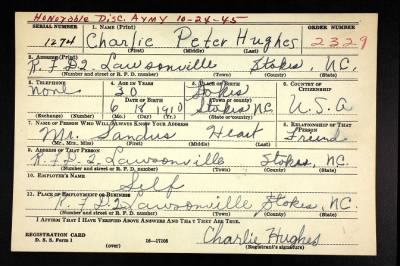 Honorable Disc. Army 10-24-45
SERIAL NUMBER 1. NAME (Print) ORDER NUMBER
1274 Charlie Peter Hughes 2329
(First) (Middle) (Last)
2. ADDRESS (Print)
R.F.D 2, Lawsonville Stokes, N.C.
(Number and street or R. F. D. number) (Town) (County) (State)
3. TELEPHONE 4. AGE IN YEARS 5. PLACE OF BIRTH 6. COUNTRY OF CITIZENSHIP
None 30 Stokes
DATE OF BIRTH (Town or county)
6 18 1910 Stokes N.C. U.S.A
(Exchange) (Number) (Mo.) (Day) (Yr.) (State or country)
7. NAME OF PERSON WHO WILL ALWAYS KNOW YOUR ADDRESS 8. RELATIONSHIP OF THAT PERSON
Mr. Sandus Heart Friend
(Mr., Mrs., Miss) (First) (Middle) (Last)
9. ADDRESS OF THAT PERSON
R.F.D-2, Lawsonville Stokes, N.C.
(Number and street or R. F. D. number) (Town) (County) (State)
10. EMPLOYER'S NAME
Self
11. PLACE OF EMPLOYMENT OR BUSINESS
R.F.D 2 Lawsonville Stokes, N.C.
(Number and street or R. F. D. number) (Town) (County) (State)
I AFFIRM THAT I HAVE VERIFIED ABOVE ANSWERS AND THAT THEY ARE TRUE.
REGISTRATION CARD
D. S. S. Form 1 (over) 16—17105
Charlie Hughes
(Registrant's signature)